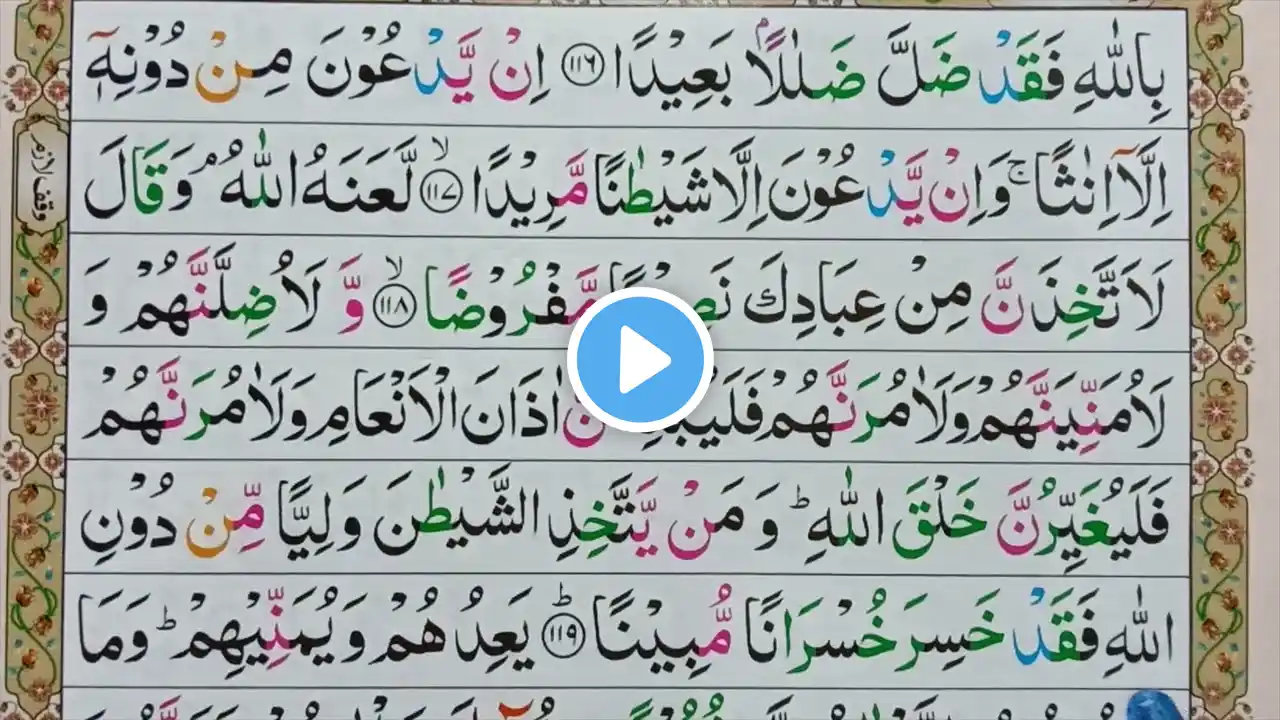 بِاللّٰهِ فَقَدْ ضَلَّ ضَلٰلًاۢ بَعِيْدًا ﴿۱۱۶﴾ اِنْ يَّدْعُوْنَ مِنْ دُوْنِهٖۤ
اِلَّاۤ اِنٰثًا ۚ وَاِنْ يَّدْعُوْنَ اِلَّا شَيْطٰنًا مَّرِيْدًا ﴿۱۱۷﴾ ۙ لَّعَنَهُ اللّٰهُ ۘ وَقَالَ
لَاَتَّخِذَنَّ مِنْ عِبَادِكَ مَّفْرُوْضًا ﴿۱۱۸﴾ ۙ وَّ لَاُضِلَّنَّهُمْ وَ
لَاُمَنِّيَنَّهُمْ وَلَاٰمُرَنَّهُمْ اٰذَانَ الْاَنْعَامِ وَلَاٰمُرَنَّهُمْ
فَلَيُغَيِّرُنَّ خَلْقَ اللّٰهِ ؕ وَ مَنْ يَّتَّخِذِ الشَّيْطٰنَ وَلِيًّا مِّنْ دُوْنِ
اللّٰهِ فَقَدْ خَسِرَ خُسْرَانًا مُّبِيْنًا ﴿۱۱۹﴾ ؕ يَعِدُهُمْ وَيُمَنِّيْهِمْ ؕ وَمَا
وقف لازم